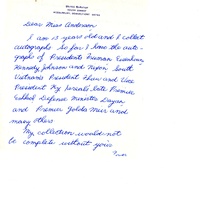 Dear Miss Anderson
I am 13 years old and I collect
autographs So far I have the auto-
graphs of Presidents Truman Eisenhower,
Kennedy Johnson and Nixon South
Vietnams President Thieu and Vice
President Ky Israels late Premier
Eshkol Defense Minister Dayan
and Premier Golda Meir and
many others
My collection would not
be complete without yours